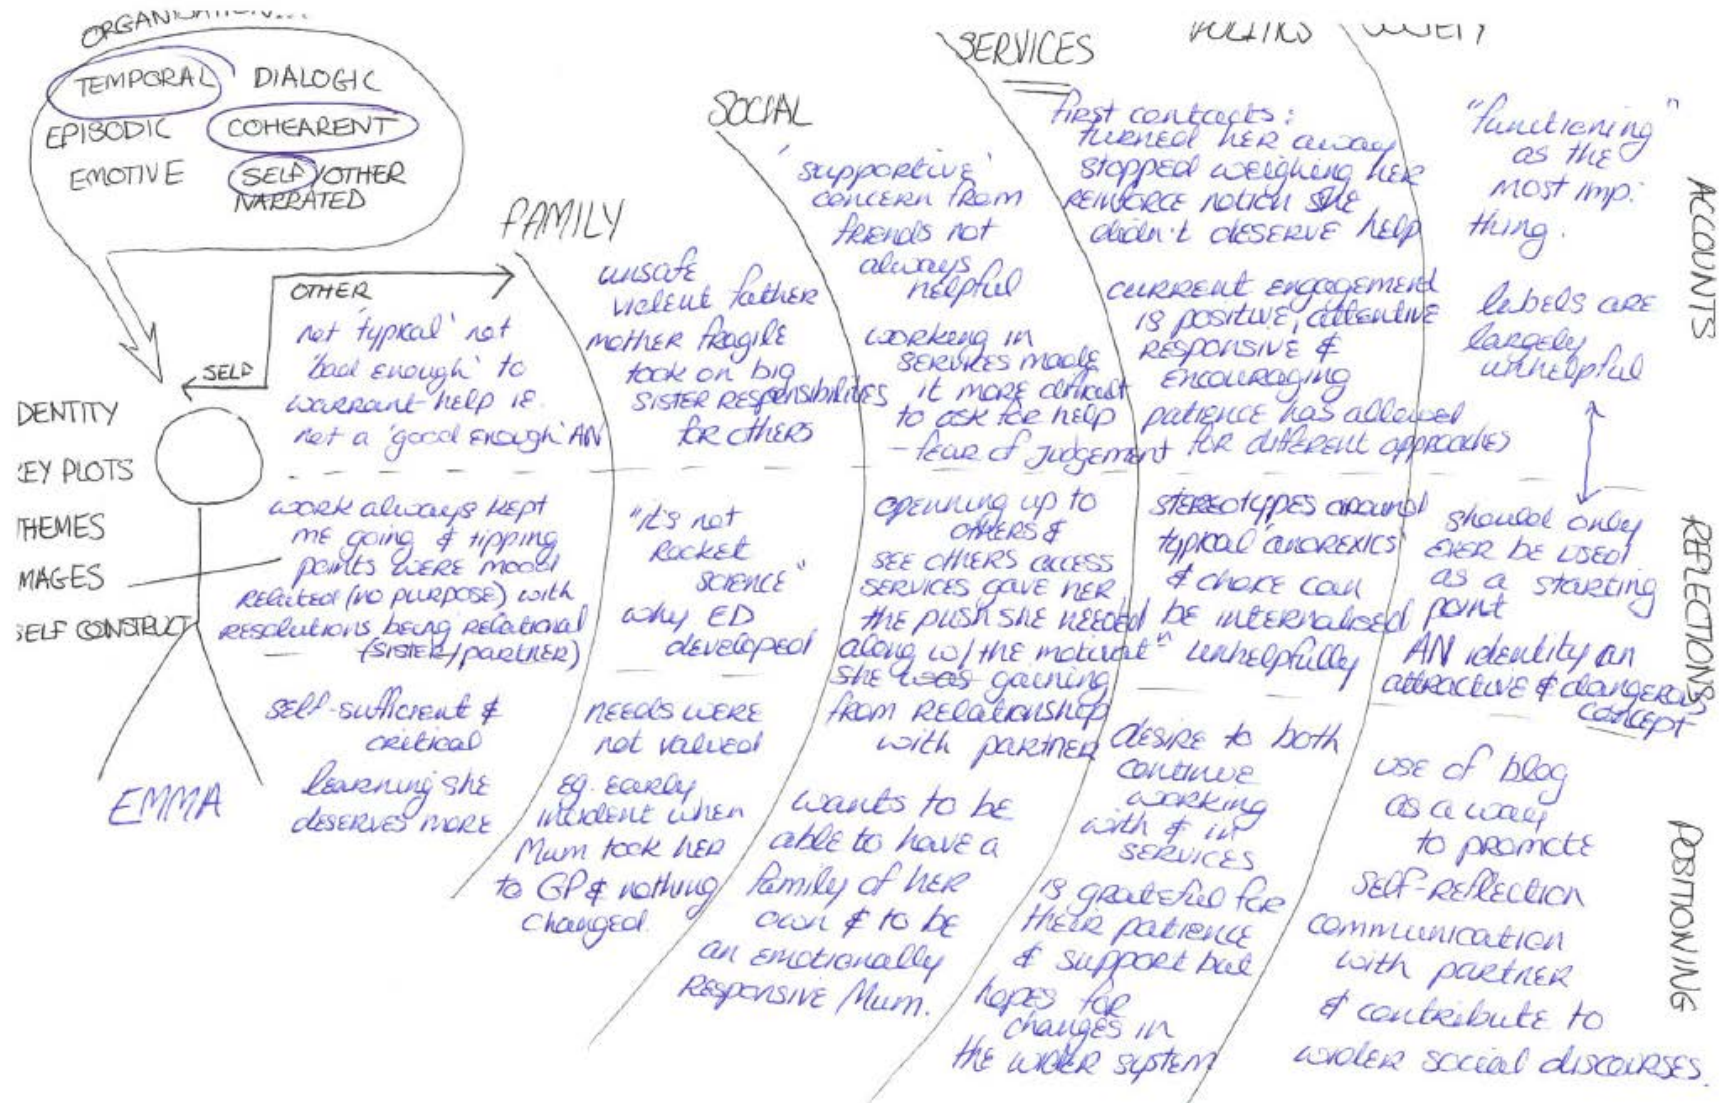 ORGANISATION...
TEMPORAL DIALOGIC
EPISODIC COHEARENT
EMOTIVE SELF/OTHER
NARRATED
OTHER
SELF
DENTITY
KEY PLOTS
THEMES
MAGES
SELF CONSTRUCT
EMMA
not 'typical' not
'bad enough' to
warrant help ie.
not a 'good enough' AN
work always kept
me going & tipping
points were mood
related (no purpose) with
resolutions being relational
(sister/partner)
self-sufficient &
critical
learning she
deserves more
FAMILY
unsafe
violent father
mother fragile
took on big
sister responsibilities
for others
"it's not
rocket
science"
why ED
developed
needs were
not valued
eg. early
incident when
Mum took her
to GP & nothing
changed.
SOCIAL
'supportive'
concern from
friends not
always
helpful
working in
services made
it more difficult
to ask for help
- fear of judgement
openning up to
others &
see others access
services gave her
the push she needed
along w/ the motivatⁿ
she was gaining
from relationship
with partner
wants to be
able to have a
family of her
own & to be
an emotionally
responsive Mum.
SERVICES
first contacts:
turned her away
stopped weighing her
reinforce notion she
didn't deserve help
current engagement
is positive, attentive
responsive &
encouraging
patience has allowed
for different approaches
stereotypes around
'typical' anorexics
& choice can
be internalised
unhelpfully
desire to both
continue
working
with & in
services
is grateful for
their patience
& support but
hopes for
changes in
the wider system
"functioning"
as the
most imp.
thing.
labels are
largely
unhelpful
should only
ever be used
as a starting
point
AN identity an
attractive & dangerous
concept
use of blog
as a way
to promote
self-reflection
communication
with partner
& contribute to
wider social discourses.
ACCOUNTS
REFLECTIONS
POSITIONING